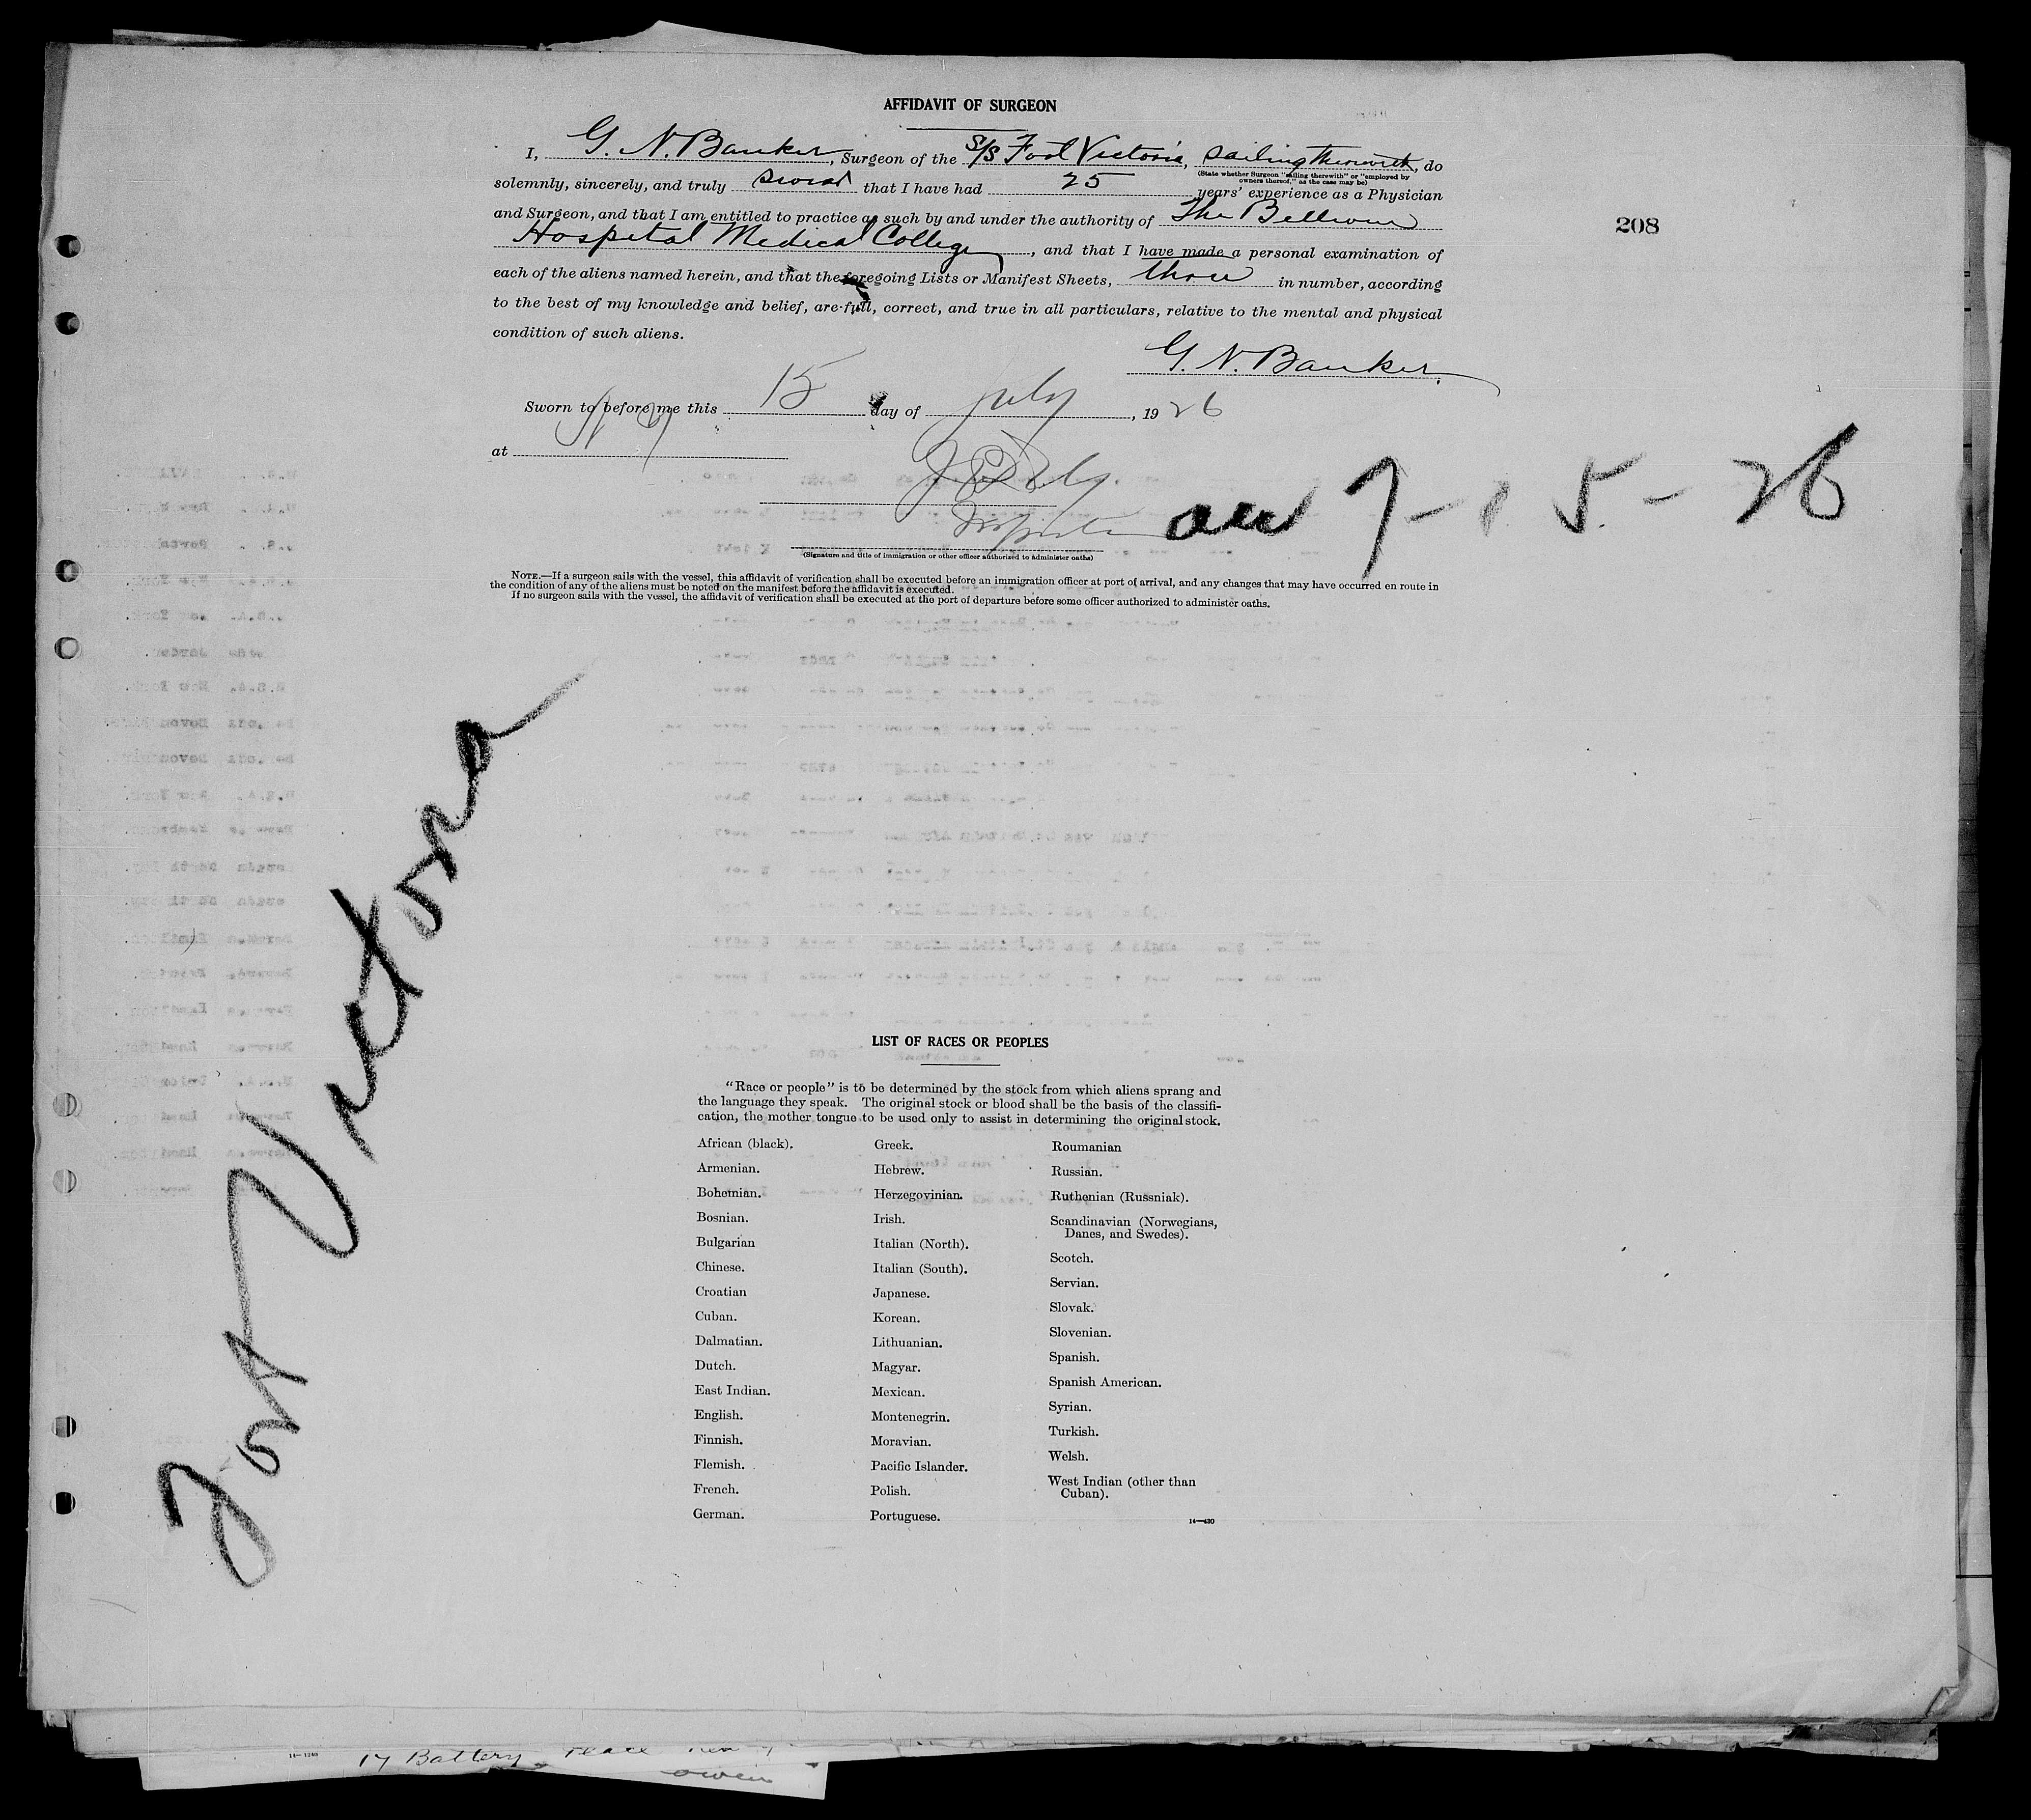 AFFIDAVIT OF SURGEON
I, G. N. Banker, Surgeon of the S/S Fort Victoria, sailing therewith, do
(State whether Surgeon "sailing therewith" or "employed by
owners thereof," as the case may be)
solemnly, sincerely, and truly swear that I have had 25 years' experience as a Physician
and Surgeon, and that I am entitled to practice as such by and under the authority of The Bellevue
208
Hospital Medical College, and that I have made a personal examination of
each of the aliens named herein, and that the foregoing Lists or Manifest Sheets, three in number, according
to the best of my knowledge and belief, are full, correct, and true in all particulars, relative to the mental and physical
condition of such aliens.
G. N. Banker
Sworn to before me this 15 day of July, 1926
at N Y
Inspector
7-15-26
(Signature and title of immigration or other officer authorized to administer oaths)
NOTE.—If a surgeon sails with the vessel, this affidavit of verification shall be executed before an immigration officer at port of arrival, and any changes that may have occurred en route in
the condition of any of the aliens must be noted on the manifest before the affidavit is executed.
If no surgeon sails with the vessel, the affidavit of verification shall be executed at the port of departure before some officer authorized to administer oaths.
Fort Victoria
LIST OF RACES OR PEOPLES
"Race or people" is to be determined by the stock from which aliens sprang and
the language they speak. The original stock or blood shall be the basis of the classifi-
cation, the mother tongue to be used only to assist in determining the original stock.
African (black).
Armenian.
Bohemian.
Bosnian.
Bulgarian
Chinese.
Croatian
Cuban.
Dalmatian.
Dutch.
East Indian.
English.
Finnish.
Flemish.
French.
German.
Greek.
Hebrew.
Herzegovinian.
Irish.
Italian (North).
Italian (South).
Japanese.
Korean.
Lithuanian.
Magyar.
Mexican.
Montenegrin.
Moravian.
Pacific Islander.
Polish.
Portuguese.
Roumanian
Russian.
Ruthenian (Russniak).
Scandinavian (Norwegians,
Danes, and Swedes).
Scotch.
Servian.
Slovak.
Slovenian.
Spanish.
Spanish American.
Syrian.
Turkish.
Welsh.
West Indian (other than
Cuban).
14—430
14—1240
17 Battery Place